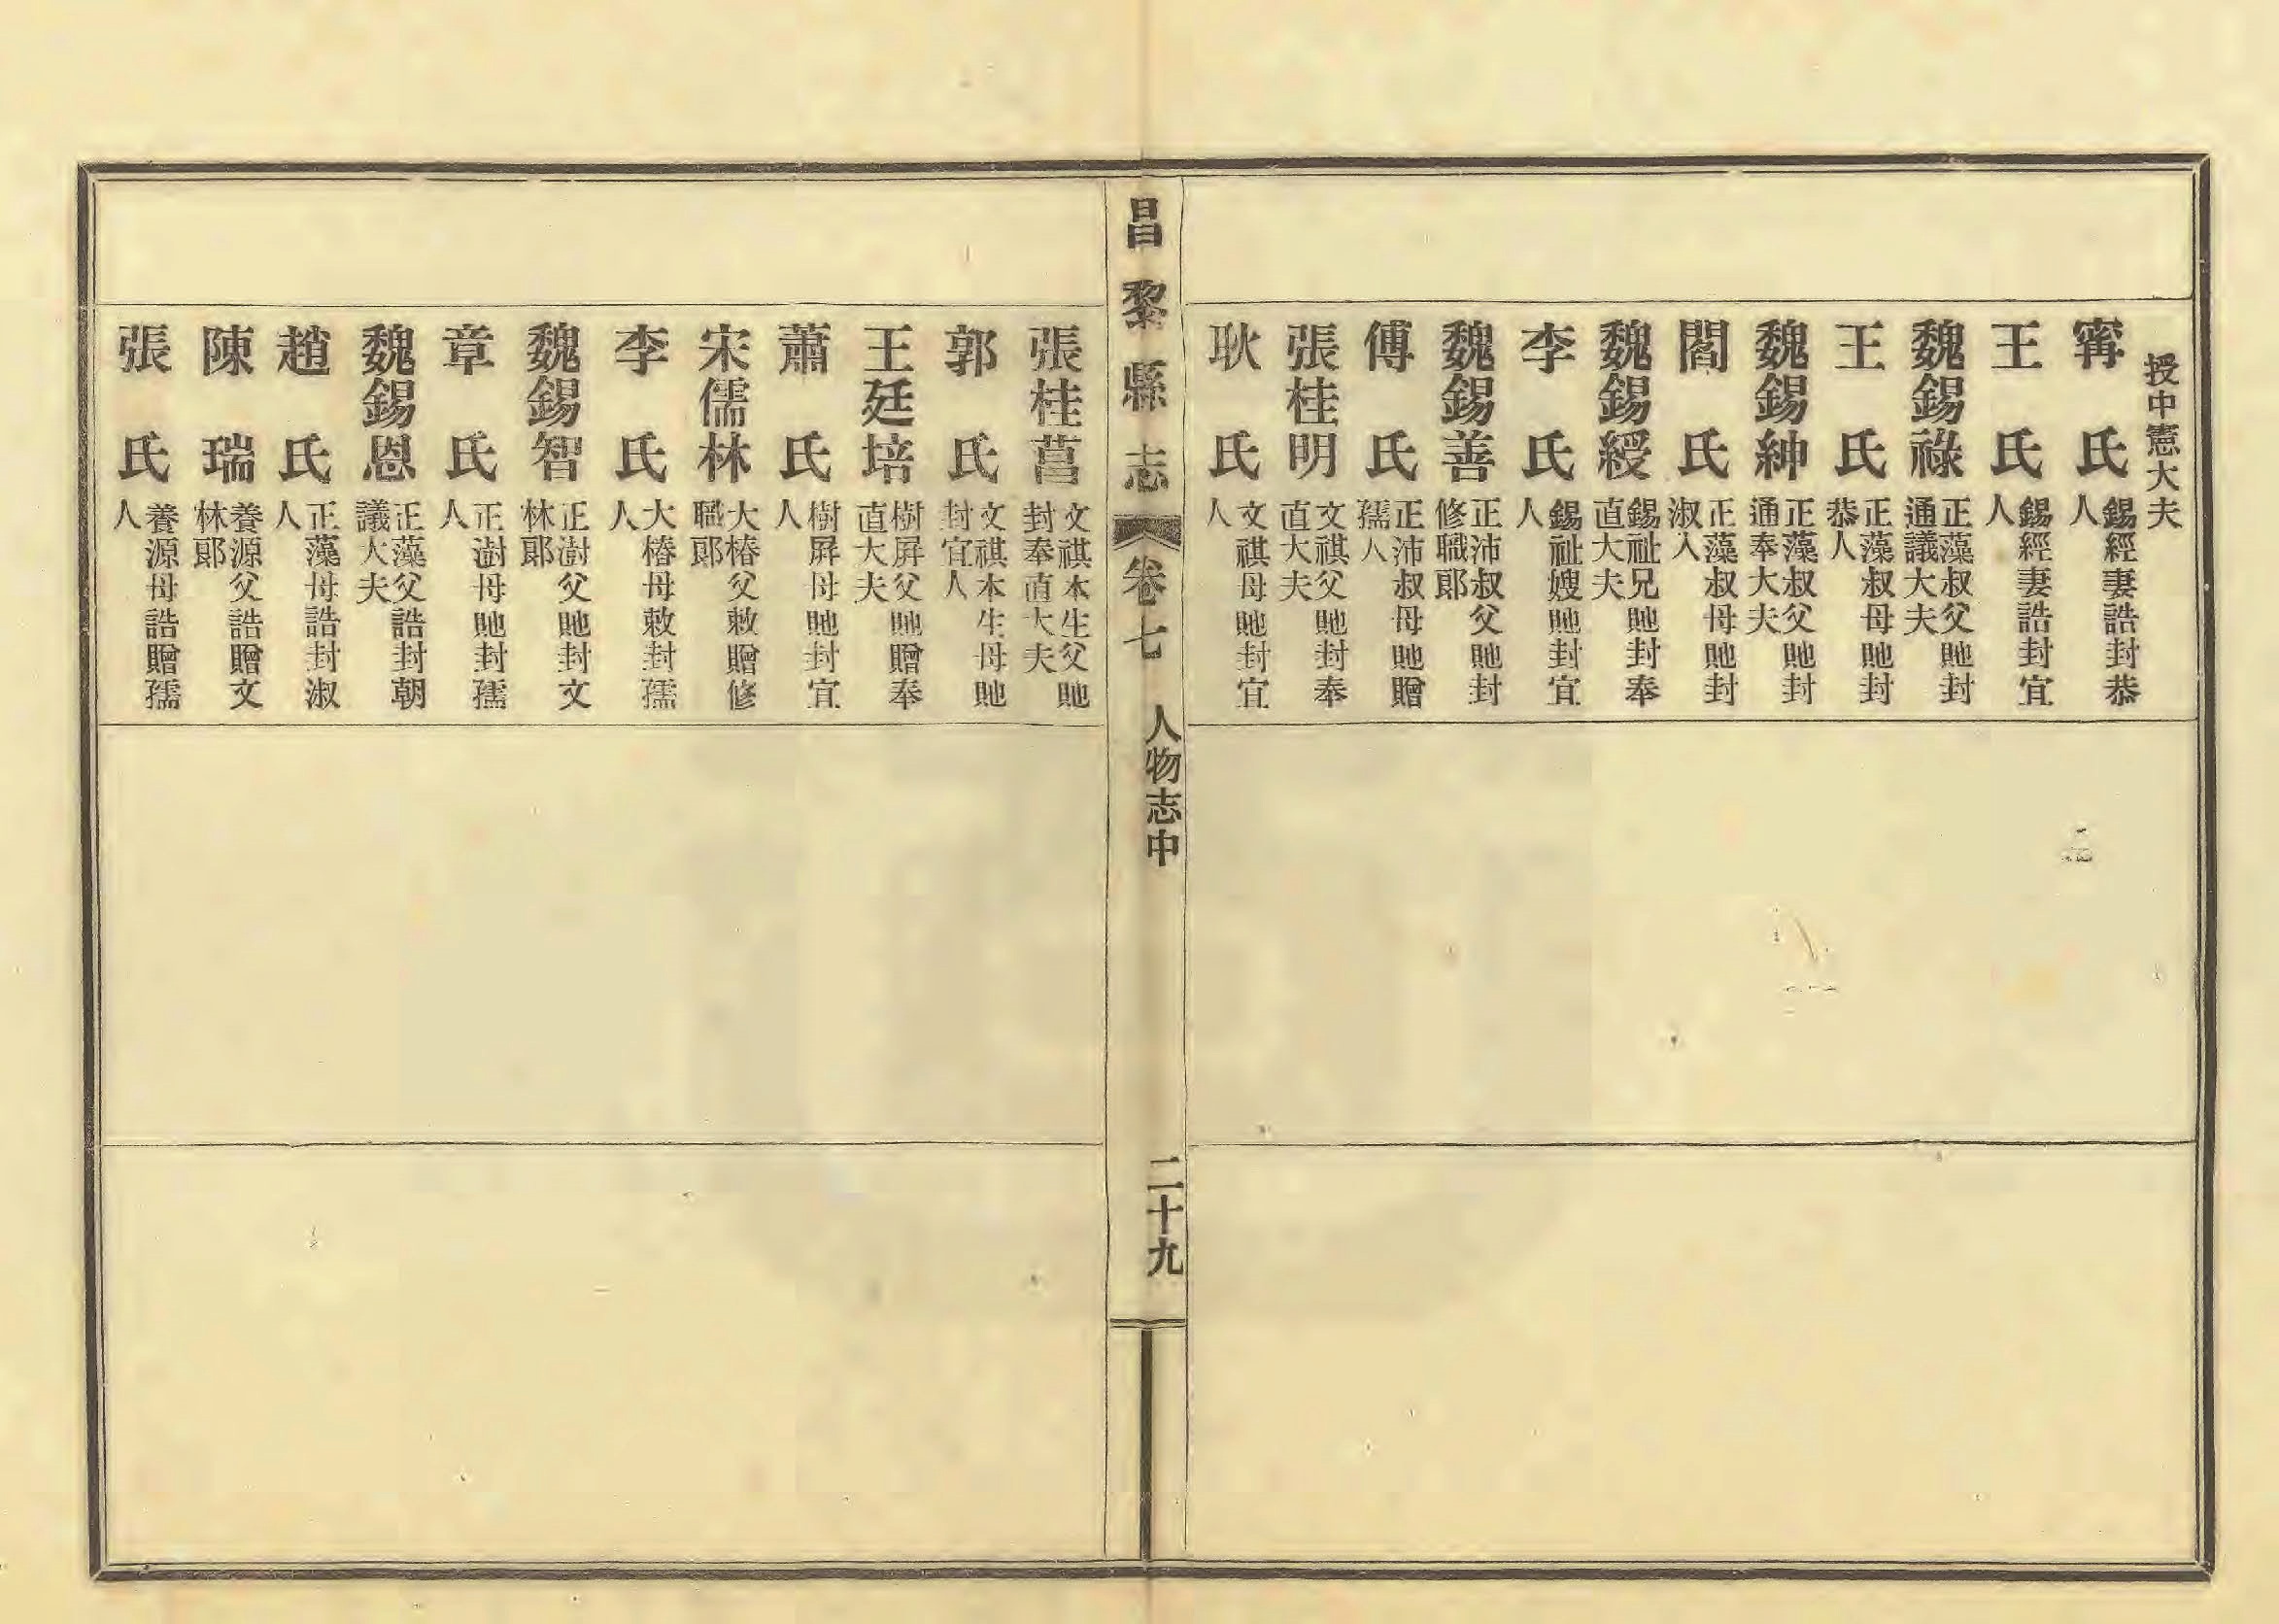 授中憲大夫
寗氏 錫經妻誥封恭人
王氏 錫經妻誥封宜人
魏錫祿 正藻叔父貤封通議大夫
王氏 正藻叔母貤封恭人
魏錫紳 正藻叔父貤封通奉大夫
閻氏 正藻叔母貤封淑人
魏錫綬 錫祉兄貤封奉直大夫
李氏 錫祉嫂貤封宜人
魏錫善 正沛叔父貤封修職郎
傅氏 正沛叔母貤贈孺人
張桂明 文祺父貤封奉直大夫
耿氏 文祺母貤封宜人
昌黎縣志 卷七 人物志中 二十九
張桂菖 文祺本生父貤封奉直大夫
郭氏 文祺本生母貤封宜人
王廷培 樹屛父貤贈奉直大夫
蕭氏 樹屛母貤封宜人
宋儒林 大椿父敕贈修職郎
李氏 大椿母敕封孺人
魏錫智 正澍父貤封文林郎
章氏 正澍母貤封孺人
魏錫恩 正藻父誥封朝議大夫
趙氏 正藻母誥封淑人
陳瑞 養源父誥贈文林郎
張氏 養源母誥贈孺人